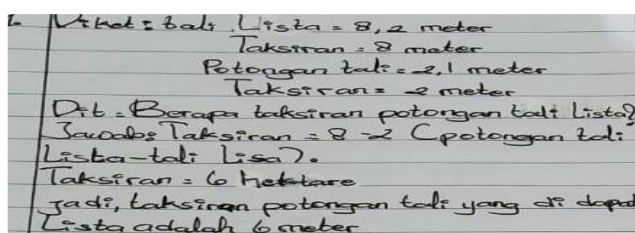 Diket : tali Lista = 8,2 meter
Taksiran = 8 meter
Potongan tali = 2,1 meter
Taksiran = 2 meter
Dit = Berapa taksiran potongan tali Lista?
Jawab : Taksiran = 8 - 2 (potongan tali
Lista - tali Lisa).
Taksiran = 6 hektare
Jadi, taksiran potongan tali yang di dapat
Lista adalah 6 meter